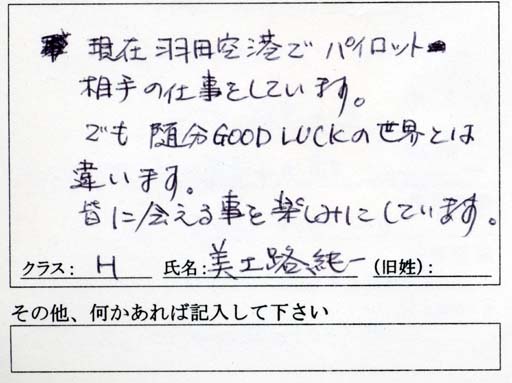 現在羽田空港でパイロット
相手の仕事をしています。
でも随分GOOD LUCKの世界とは
違います。
皆に会える事を楽しみにしています。
クラス： H 氏名：美土路純一 (旧姓)：
その他、何かあれば記入して下さい